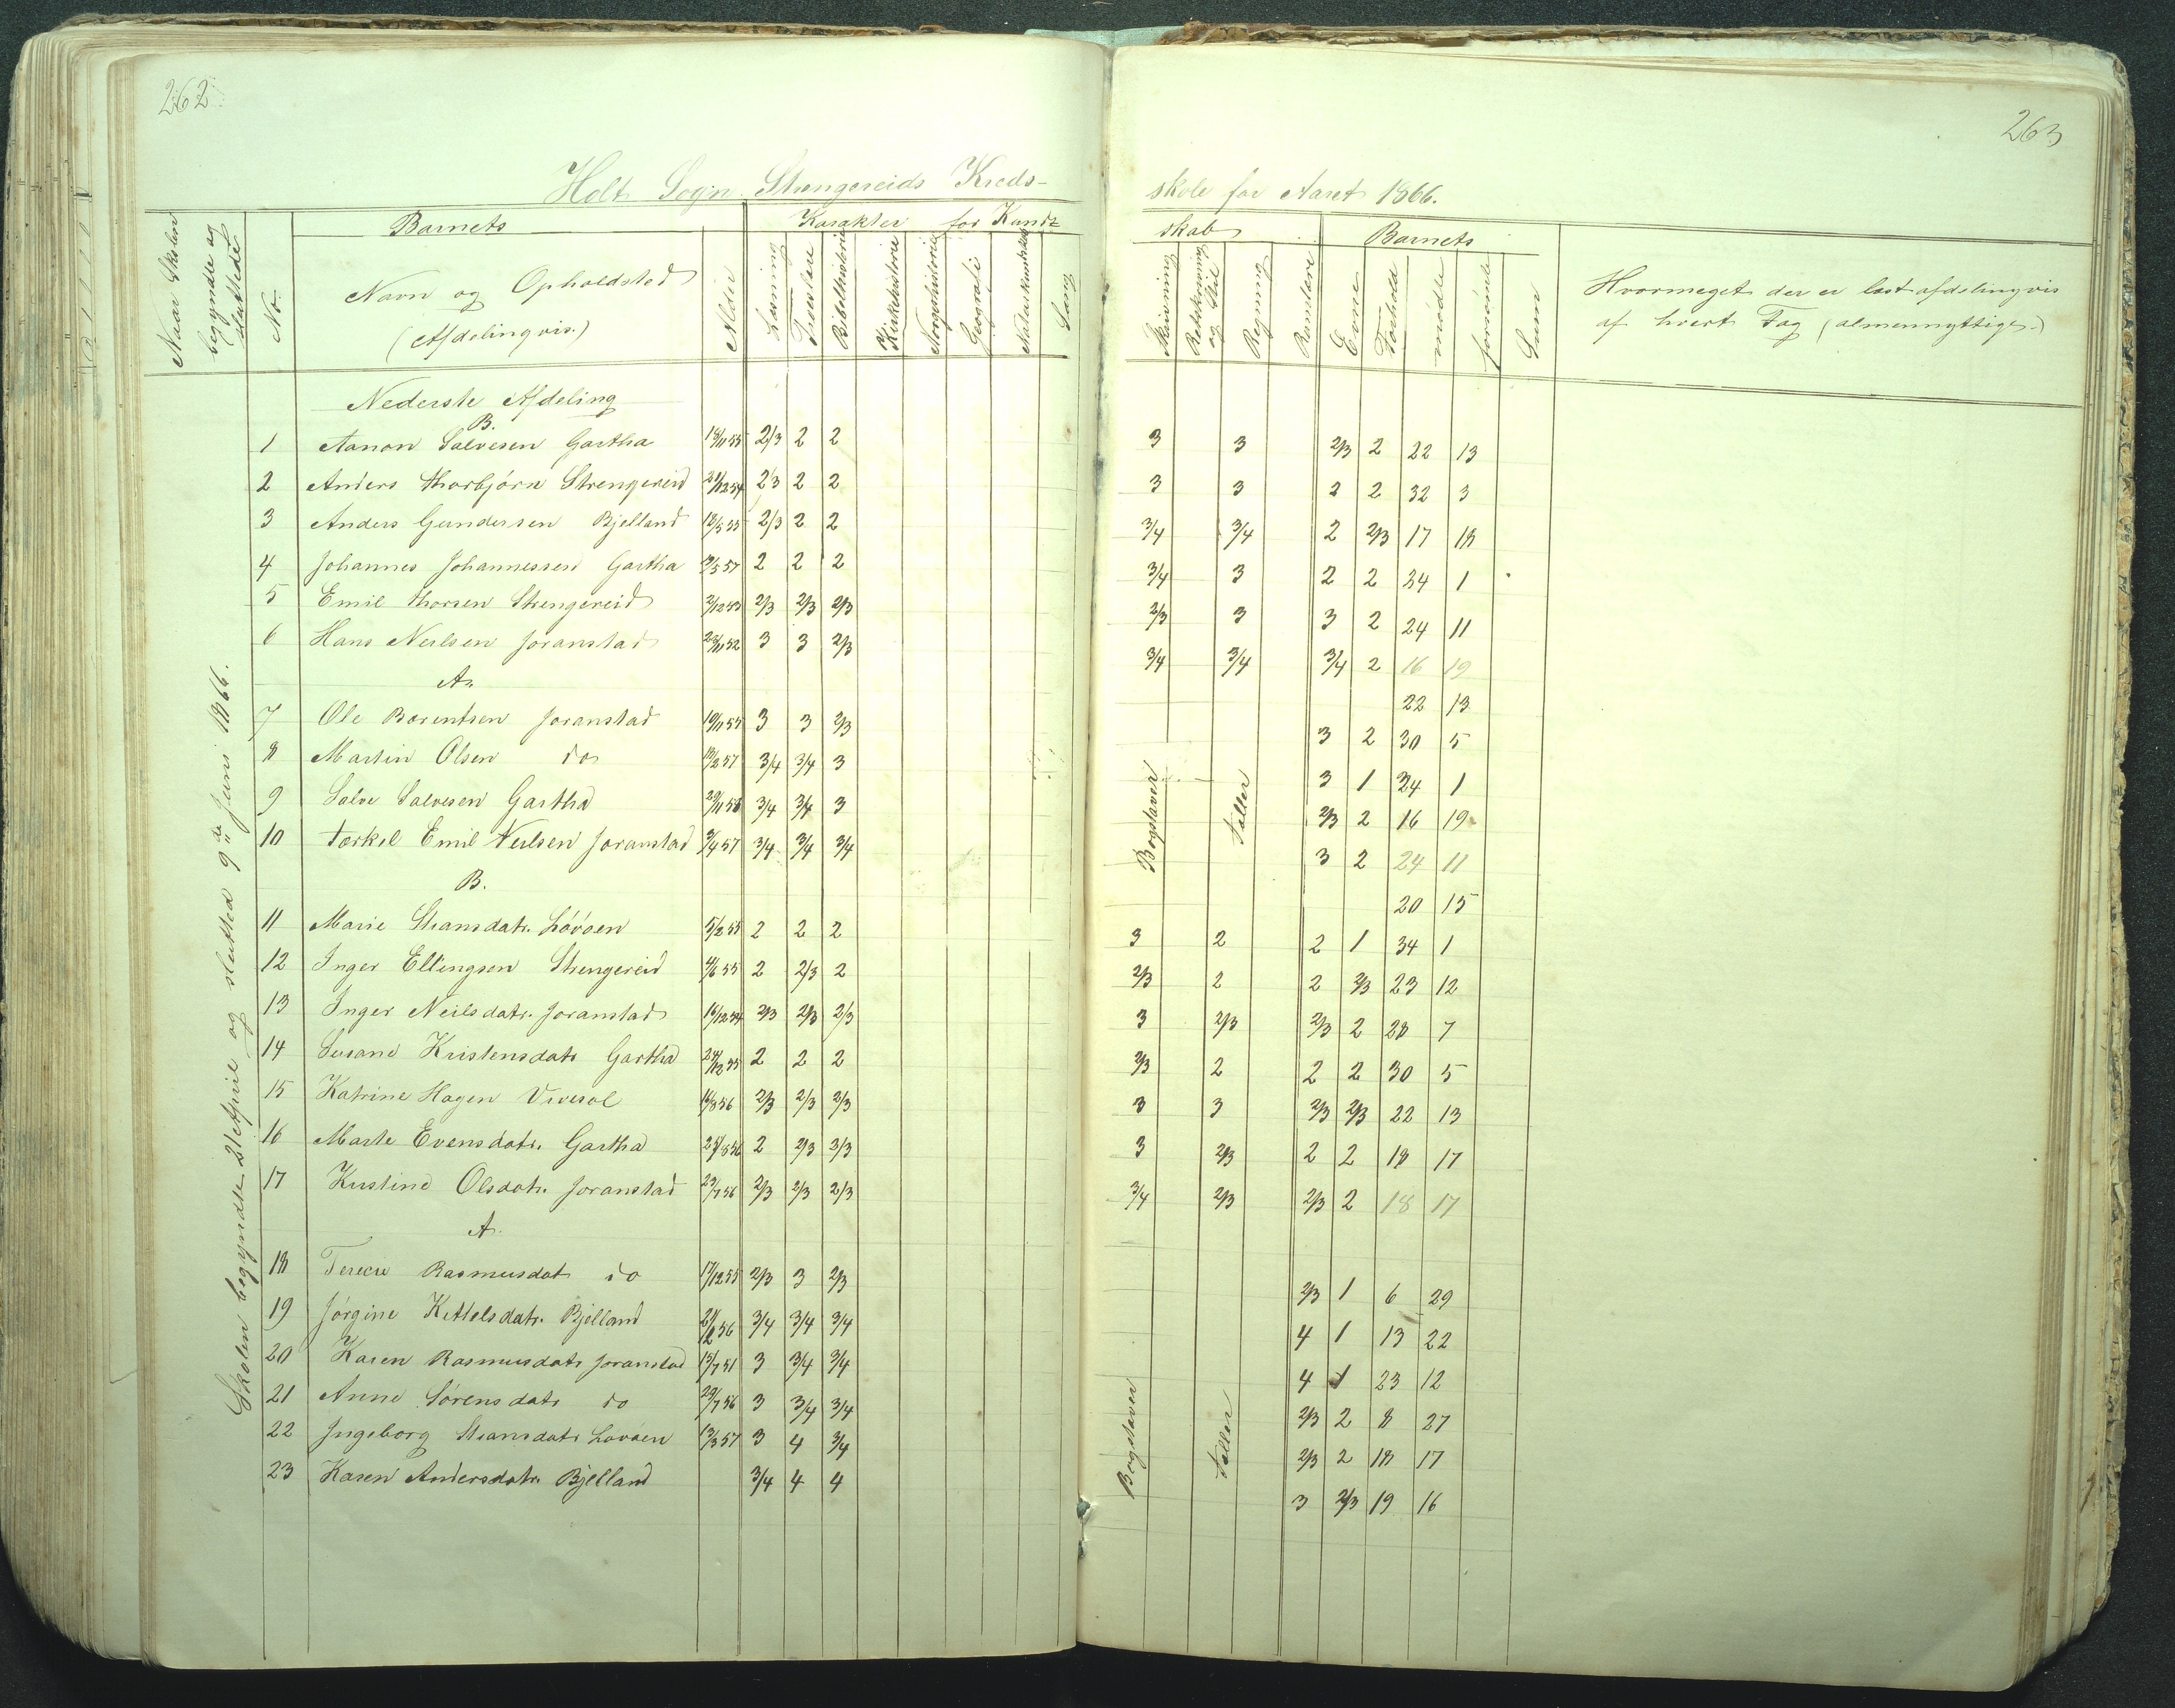 262
263
Holt Sogn. Strengereids Kreds-
skole for Aaret 1866.
Naar Skolen begyndte og sluttede
No.
Barnets
Navn og Opholdsted
(Afdelingvis.)
Alder
Karakter for Kund=
Læsning
Troeslære
Bibelhistorie
Kirkehistorie
Norgeshistorie
Geografi
Naturkundskab
Sang
skab
Skrivning
Retskrivning og Stil
Regning
Barnets
Evne
Forhold
mødte
forsømte
Sum
Hvormeget der er læst afdelingvis
af hvert Fag (almennyttige.)
Skolen begyndte 21 April og sluttede 9de Juni 1866.
Nederste Afdeling
B.
1 Aanon Salvesen Gartha 18/11 55 2/3 2 2 3 3 2/3 2 22 13
2 Anders Thorbjörn Strengereid 21/12 54 2/3 2 2 3 3 2 2 32 3
3 Anders Gundersen Bjelland 12/5 55 2/3 2 2 3/4 3/4 2 2/3 17 18
4 Johannes Johannessen Gartha 9/5 57 2 2 2 3/4 3 2 2 34 1
5 Emil Thorsen Strengereid 2/12 53 2/3 2/3 2/3 2/3 3 3 2 24 11
6 Hans Neilsen Joranstad 23/11 52 3 3 2/3 3/4 3/4 3/4 2 16 19
A. 22 13
7 Ole Barentsen Joranstad 10/11 55 3 3 2/3 3 2 30 5
8 Martin Olsen do 19/2 57 3/4 3/4 3 3 1 34 1
9 Salve Salvesen Gartha 29/11 58 3/4 3/4 3 2/3 2 16 19
10 Torkel Emil Neilsen Joranstad 3/4 57 3/4 3/4 3/4 3 2 24 11
Bogstaver
Taller
B. 20 15
11 Marie Stiansdatr. Lövöen 5/2 55 2 2 2 3 2 2 1 34 1
12 Inger Ellingsen Strengereid 4/6 55 2 2/3 2 2/3 2 2 2/3 23 12
13 Inger Neilsdatr. Joranstad 16/12 54 2/3 2/3 2/3 3 2/3 2/3 2 28 7
14 Susane Kristensdatr Gartha 24/12 55 2 2 2 2/3 2 2 2 30 5
15 Katrine Hagen 16/8 56 2/3 2/3 2/3 3 3 2/3 2/3 22 13
16 Marte Evensdatr. Gartha 25/8 56 2 2/3 2/3 3 2/3 2 2 18 17
17 Kirstine Olsdatr. Joranstad 23/7 56 2/3 2/3 2/3 3/4 2/3 2/3 2 18 17
A.
18 Rasmusdat do 17/12 55 2/3 3 2/3 2/3 1 6 29
19 Jörgine Kettelsdatr. Bjelland 21/12 56 3/4 3/4 3/4 4 1 13 22
20 Karen Rasmusdatr Joranstad 15/7 51 3 3/4 3/4 4 1 23 12
21 Anne Sörensdatr do 29/7 56 3 3/4 3/4 2/3 2 8 27
22 Ingeborg Stiansdatr Lövöen 13/3 57 3 4 3/4 2/3 2 18 17
23 Karen Andersdatr. Bjelland 3/4 4 4 3 2/3 19 16
Bogstaver
Taller